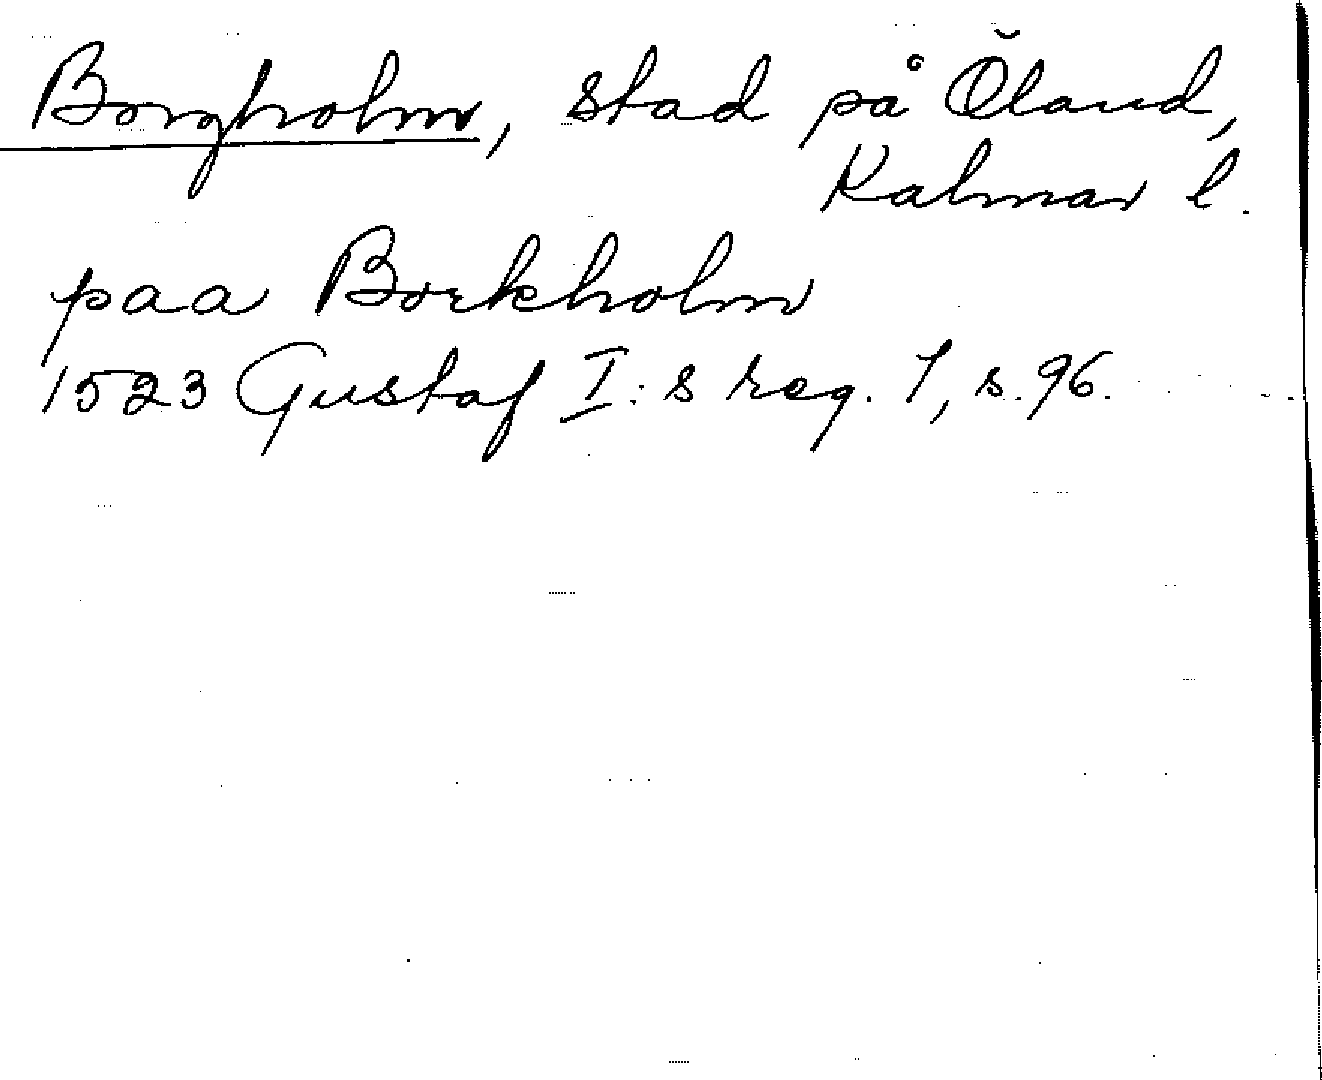 Borgholm, stad på Öland,
Kalmar l.
paa Borkholm
1523 Gustaf I:s reg. 1, s. 96.